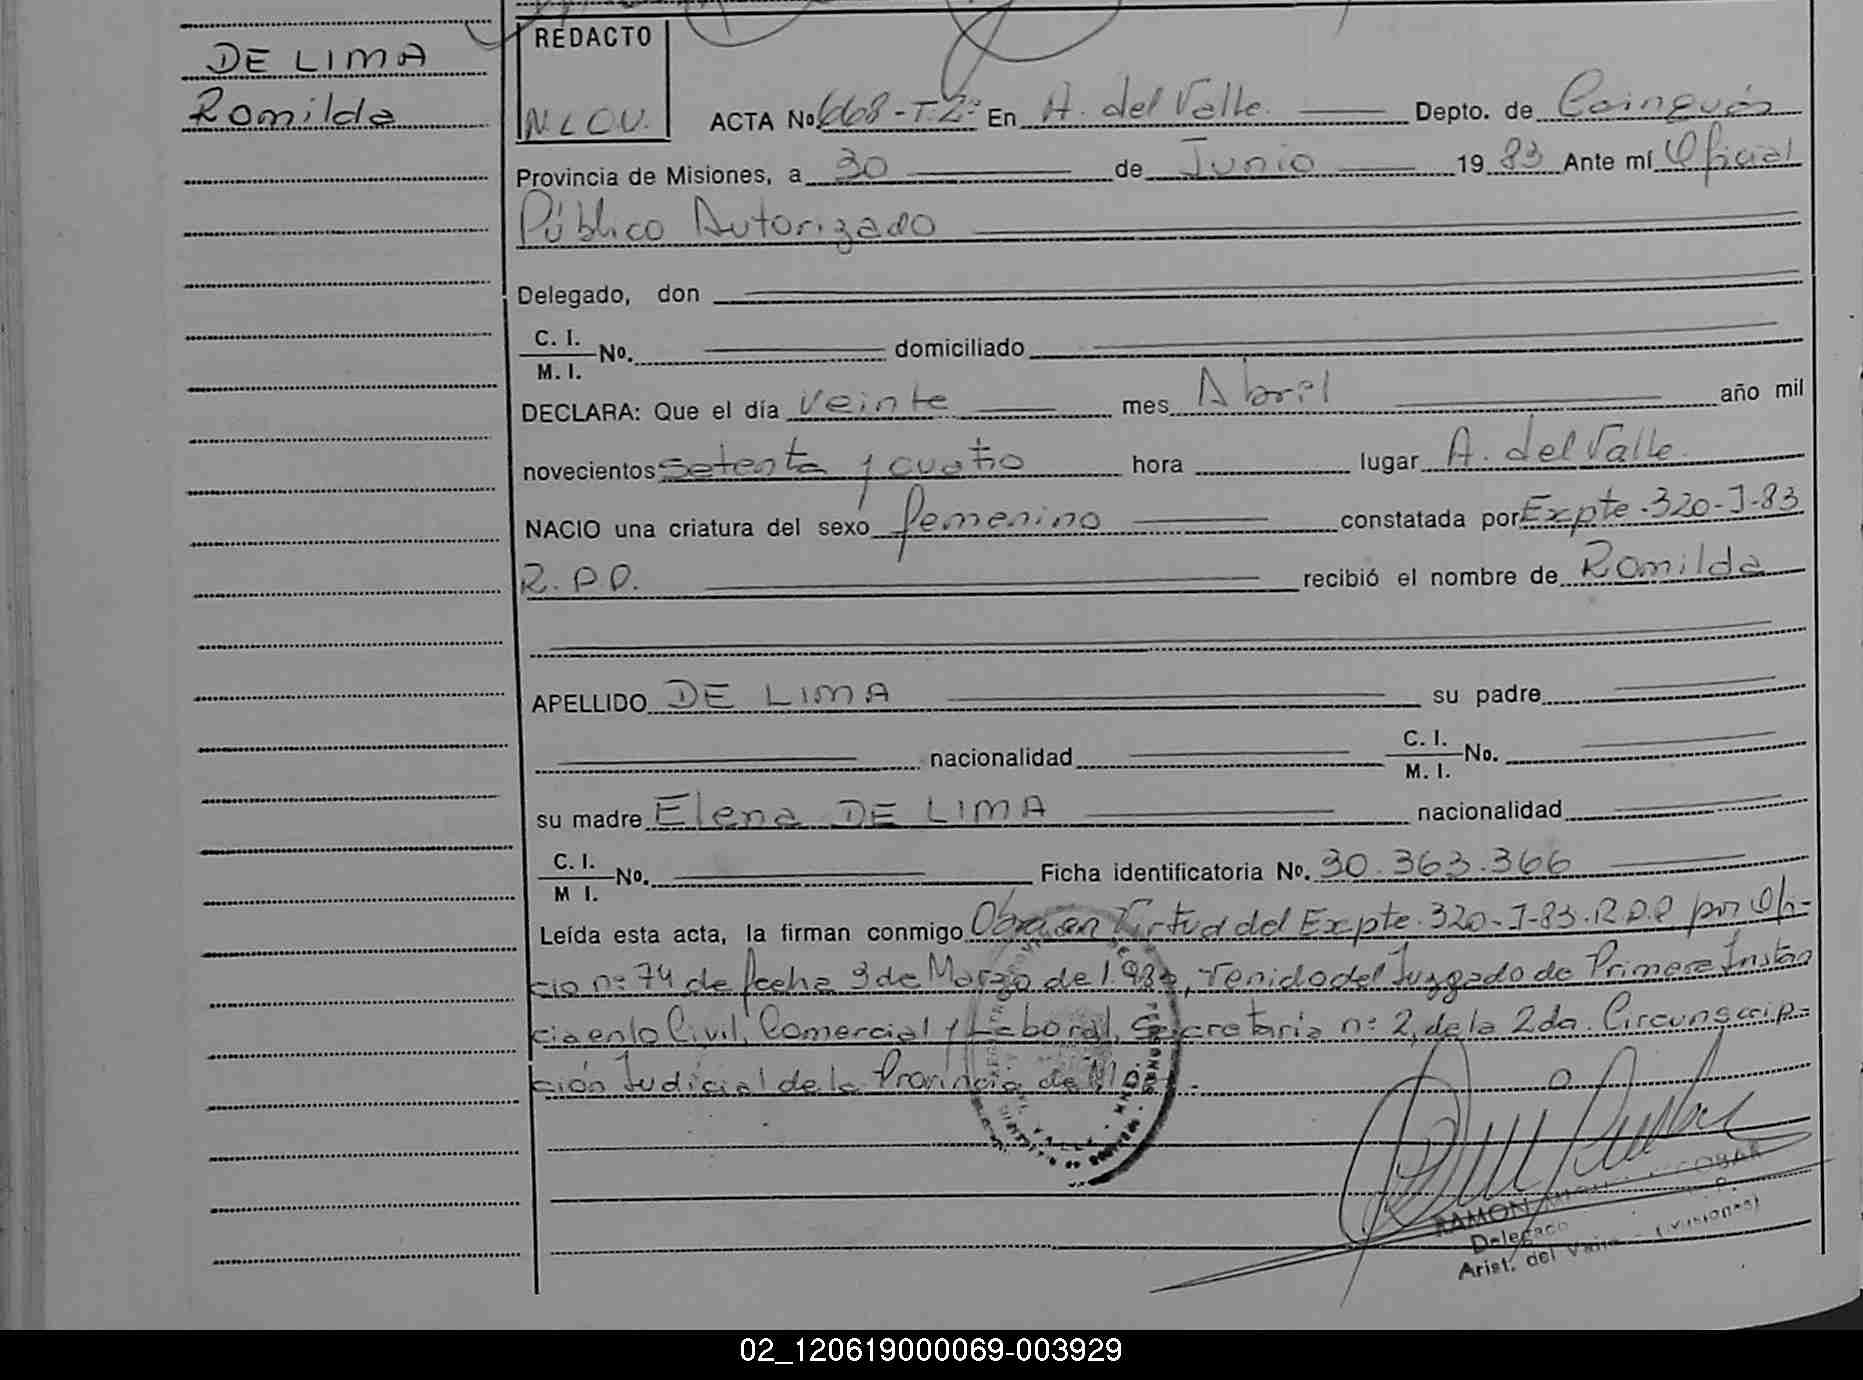 DE LIMA
Romilda
REDACTO
N.L.O.V.
ACTA No. 668-T.2º En A. del Valle. Depto. de Cainguás
Provincia de Misiones, a 30 de Junio 19 83 Ante mí Oficial
Público Autorizado
Delegado, don
C. I. / M. I. No. domiciliado
DECLARA: Que el día veinte mes Abril año mil
novecientos setenta y cuatro hora lugar A. del Valle.
NACIO una criatura del sexo femenino constatada por Expte.320-J-83
R.P.D. recibió el nombre de Romilda
APELLIDO DE LIMA su padre
nacionalidad C. I. / M. I. No.
su madre Elena DE LIMA nacionalidad
C. I. / M I. No. Ficha identificatoria No. 30.363.366
Leída esta acta, la firman conmigo Obra en Virtud del Expte.320-J-83.R.P.D por Ofi-
cio nº 74 de fecha 9 de Marzo de 1.983, Venido del Juzgado de Primera Instan
cia en lo Civil, Comercial y Laboral, Secretaria nº 2, de la 2da. Circunscrip-
ción Judicial de la Provincia de
RAMON
Delegado
Arist. del Valle - (Misiones)
02_120619000069-003929